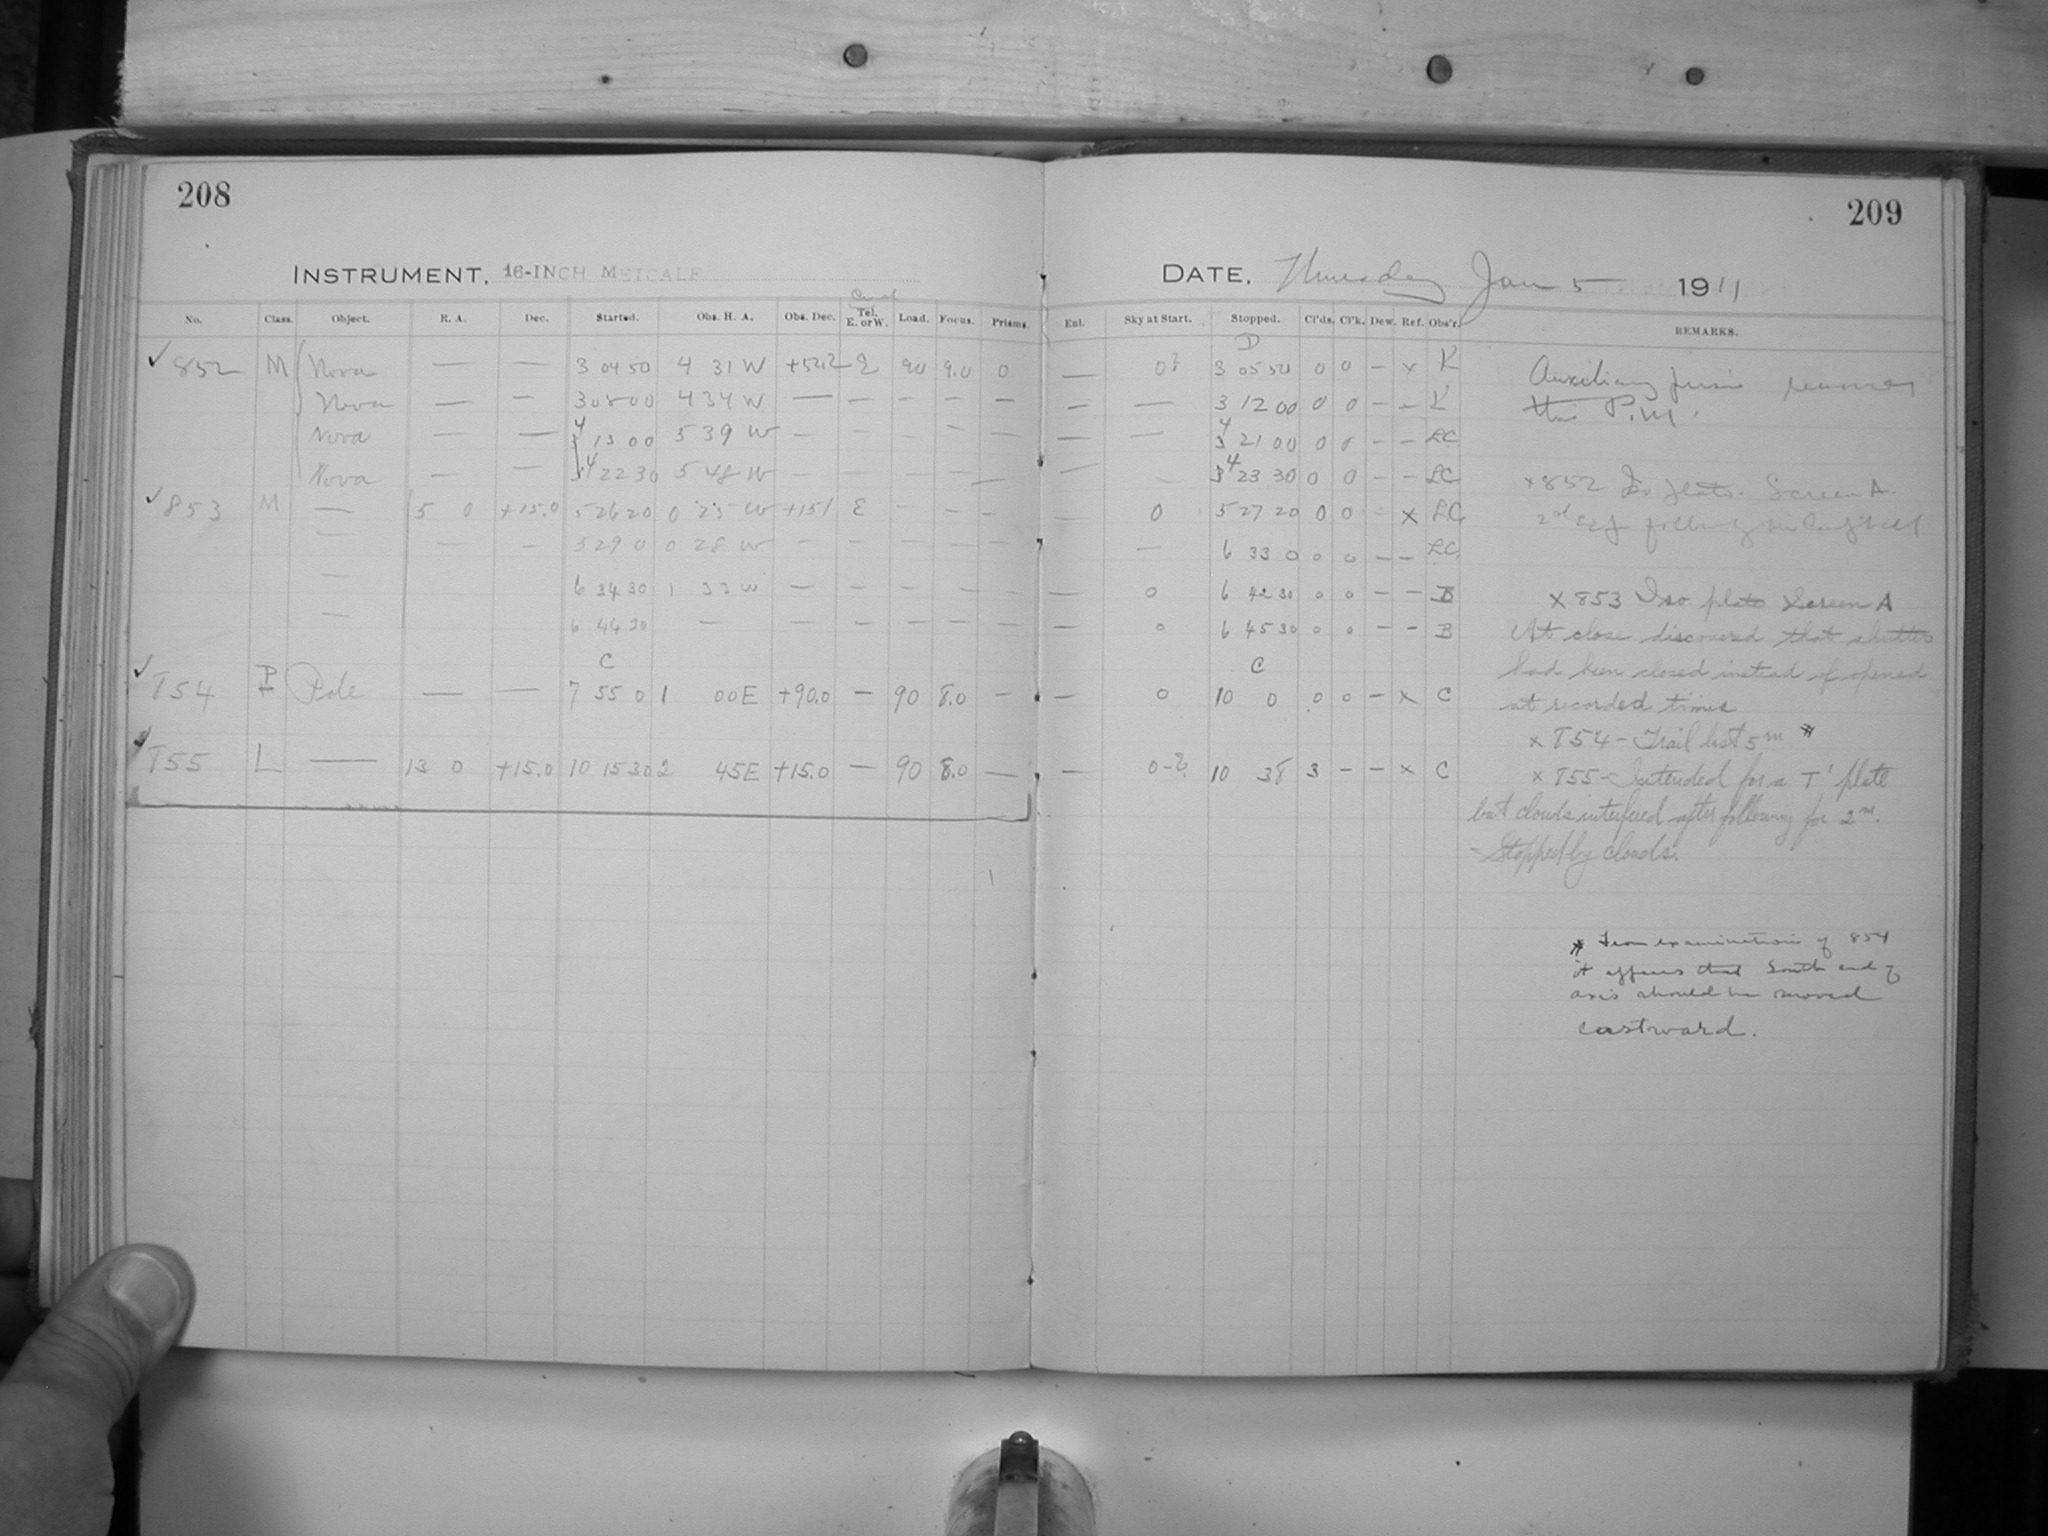 208
209
INSTRUMENT, 16-INCH METCALF
DATE, Thursday Jan 5 1911
No. Class. Object. R. A. Dec. Started. Obs. H. A. Obs. Dec. Tel. E. or W. Load. Focus. Prisms. Enl. Sky at Start. Stopped. Cl'ds. Cl'k. Dew. Ref. Obs'r. REMARKS.
D
✓ 852 M Nova — — 3 04 50 4 31 W +52.2 E 90 9.0 0 — 0? 3 05 50 0 0 — x K
Nova — — 3 08 00 4 34 W — — — — — — — 3 12 00 0 0 — — K
Nova — — 4 13 00 5 39 W — — — — — — — 4 21 00 0 0 — — LC
Nova — — 4 22 30 5 48 W — — — — — — 4 23 30 0 0 — — LC
✓ 853 M — 5 0 +15.0 5 26 20 0 25 W +15.1 E — — — — 0 5 27 20 0 0 — x LC
— — — 5 29 0 0 28 W — — — — — — — 6 33 0 0 0 — — LC
— 6 34 30 1 33 W — — — — — — 0 6 42 30 0 0 — — B
— 6 44 30 — — — — — — — 0 6 45 30 0 0 — — B
C C
✓ 854 P Pole — — 7 55 0 1 00 E +90.0 — 90 8.0 — — 0 10 0 0 0 — x C
✓ 855 L — 13 0 +15.0 10 15 30 2 45 E +15.0 — 90 8.0 — — 0-2 10 38 3 — — x C
Auxiliary prism
this P.M.
x 852 Iso plate. Screen A.
2nd following
x 853 Iso plate Screen A
At close discovered that shutter
had been closed instead of opened
at recorded times
x 854 - Trail last 5m #
x 855 - Intended for a T' plate
but clouds interfered after following for 2m.
- Stopped by clouds.
# From examination of 854
it appears that South end of
axis should be moved
eastward.